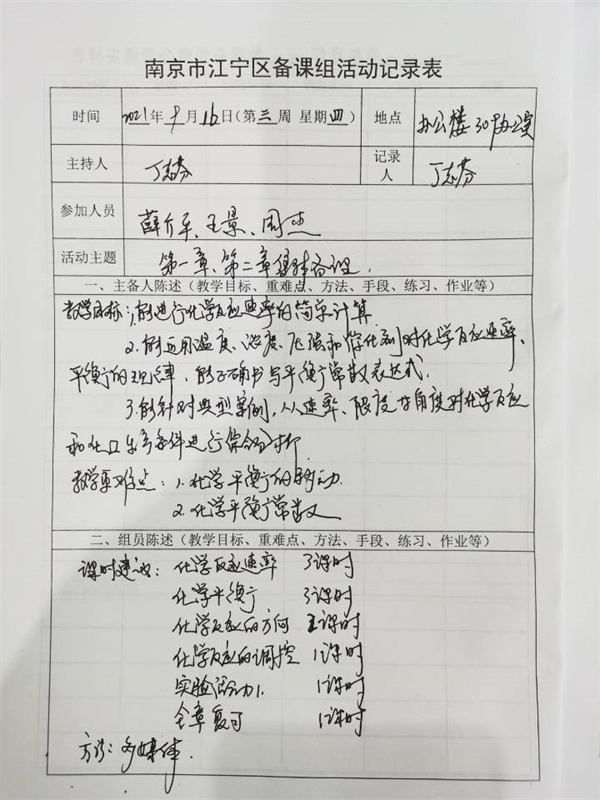 南京市江宁区备课组活动记录表
时间 2021年9月16日(第三周 星期四) 地点 办公楼30办公室
主持人 丁志芬 记录人 丁志芬
参加人员 薛介平、王景、周杰
活动主题 第一章、第二章集体备课.
一、主备人陈述(教学目标、重难点、方法、手段、练习、作业等)
教学目标:1.能进行化学反应速率的简单计算
2.能运用温度、浓度、压强和催化剂对化学反应速率、
平衡的规律,能正确书写平衡常数表达式.
3.能针对典型案例,从速率、限度等角度对化学反应
和化工生产条件进行综合分析.
教学重难点:1.化学平衡的移动.
2.化学平衡常数
二、组员陈述(教学目标、重难点、方法、手段、练习、作业等)
课时建议:化学反应速率 3课时
化学平衡 3课时
化学反应的方向 2课时
化学反应的调控 1课时
实验活动1. 1课时
全章复习 1课时
方法:多媒体.